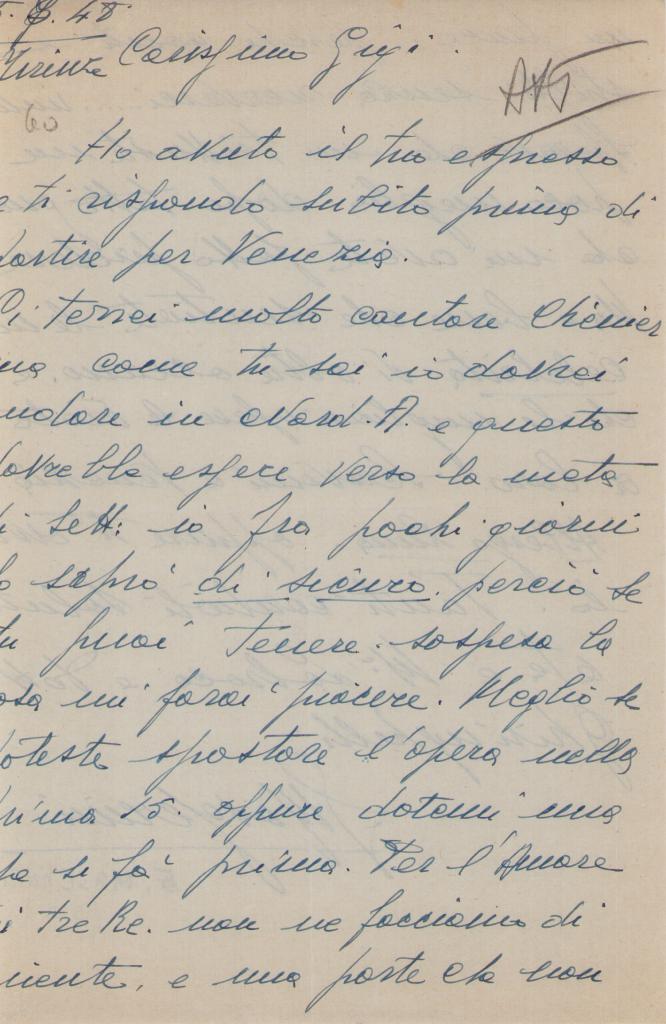 5.8.48
Firenze Carissimo Gigi.
60
Ho avuto il tuo espresso
e ti rispondo subito prima di
partire per Venezia.
Ci terrei molto cantare Chénier
ma come tu sai io dovrei
andare in Nord. A. e questo
dovrebbe essere verso la metà
di Sett: io fra pochi giorni
lo saprò di sicuro. perciò se
tu puoi tenere sospesa la
cosa mi farai piacere. Meglio se
poteste spostare l'opera nella
prima 15. oppure datemi una
che si fà prima. Per l'Amore
di tre Re. non ne facciamo di
niente, e una parte che non